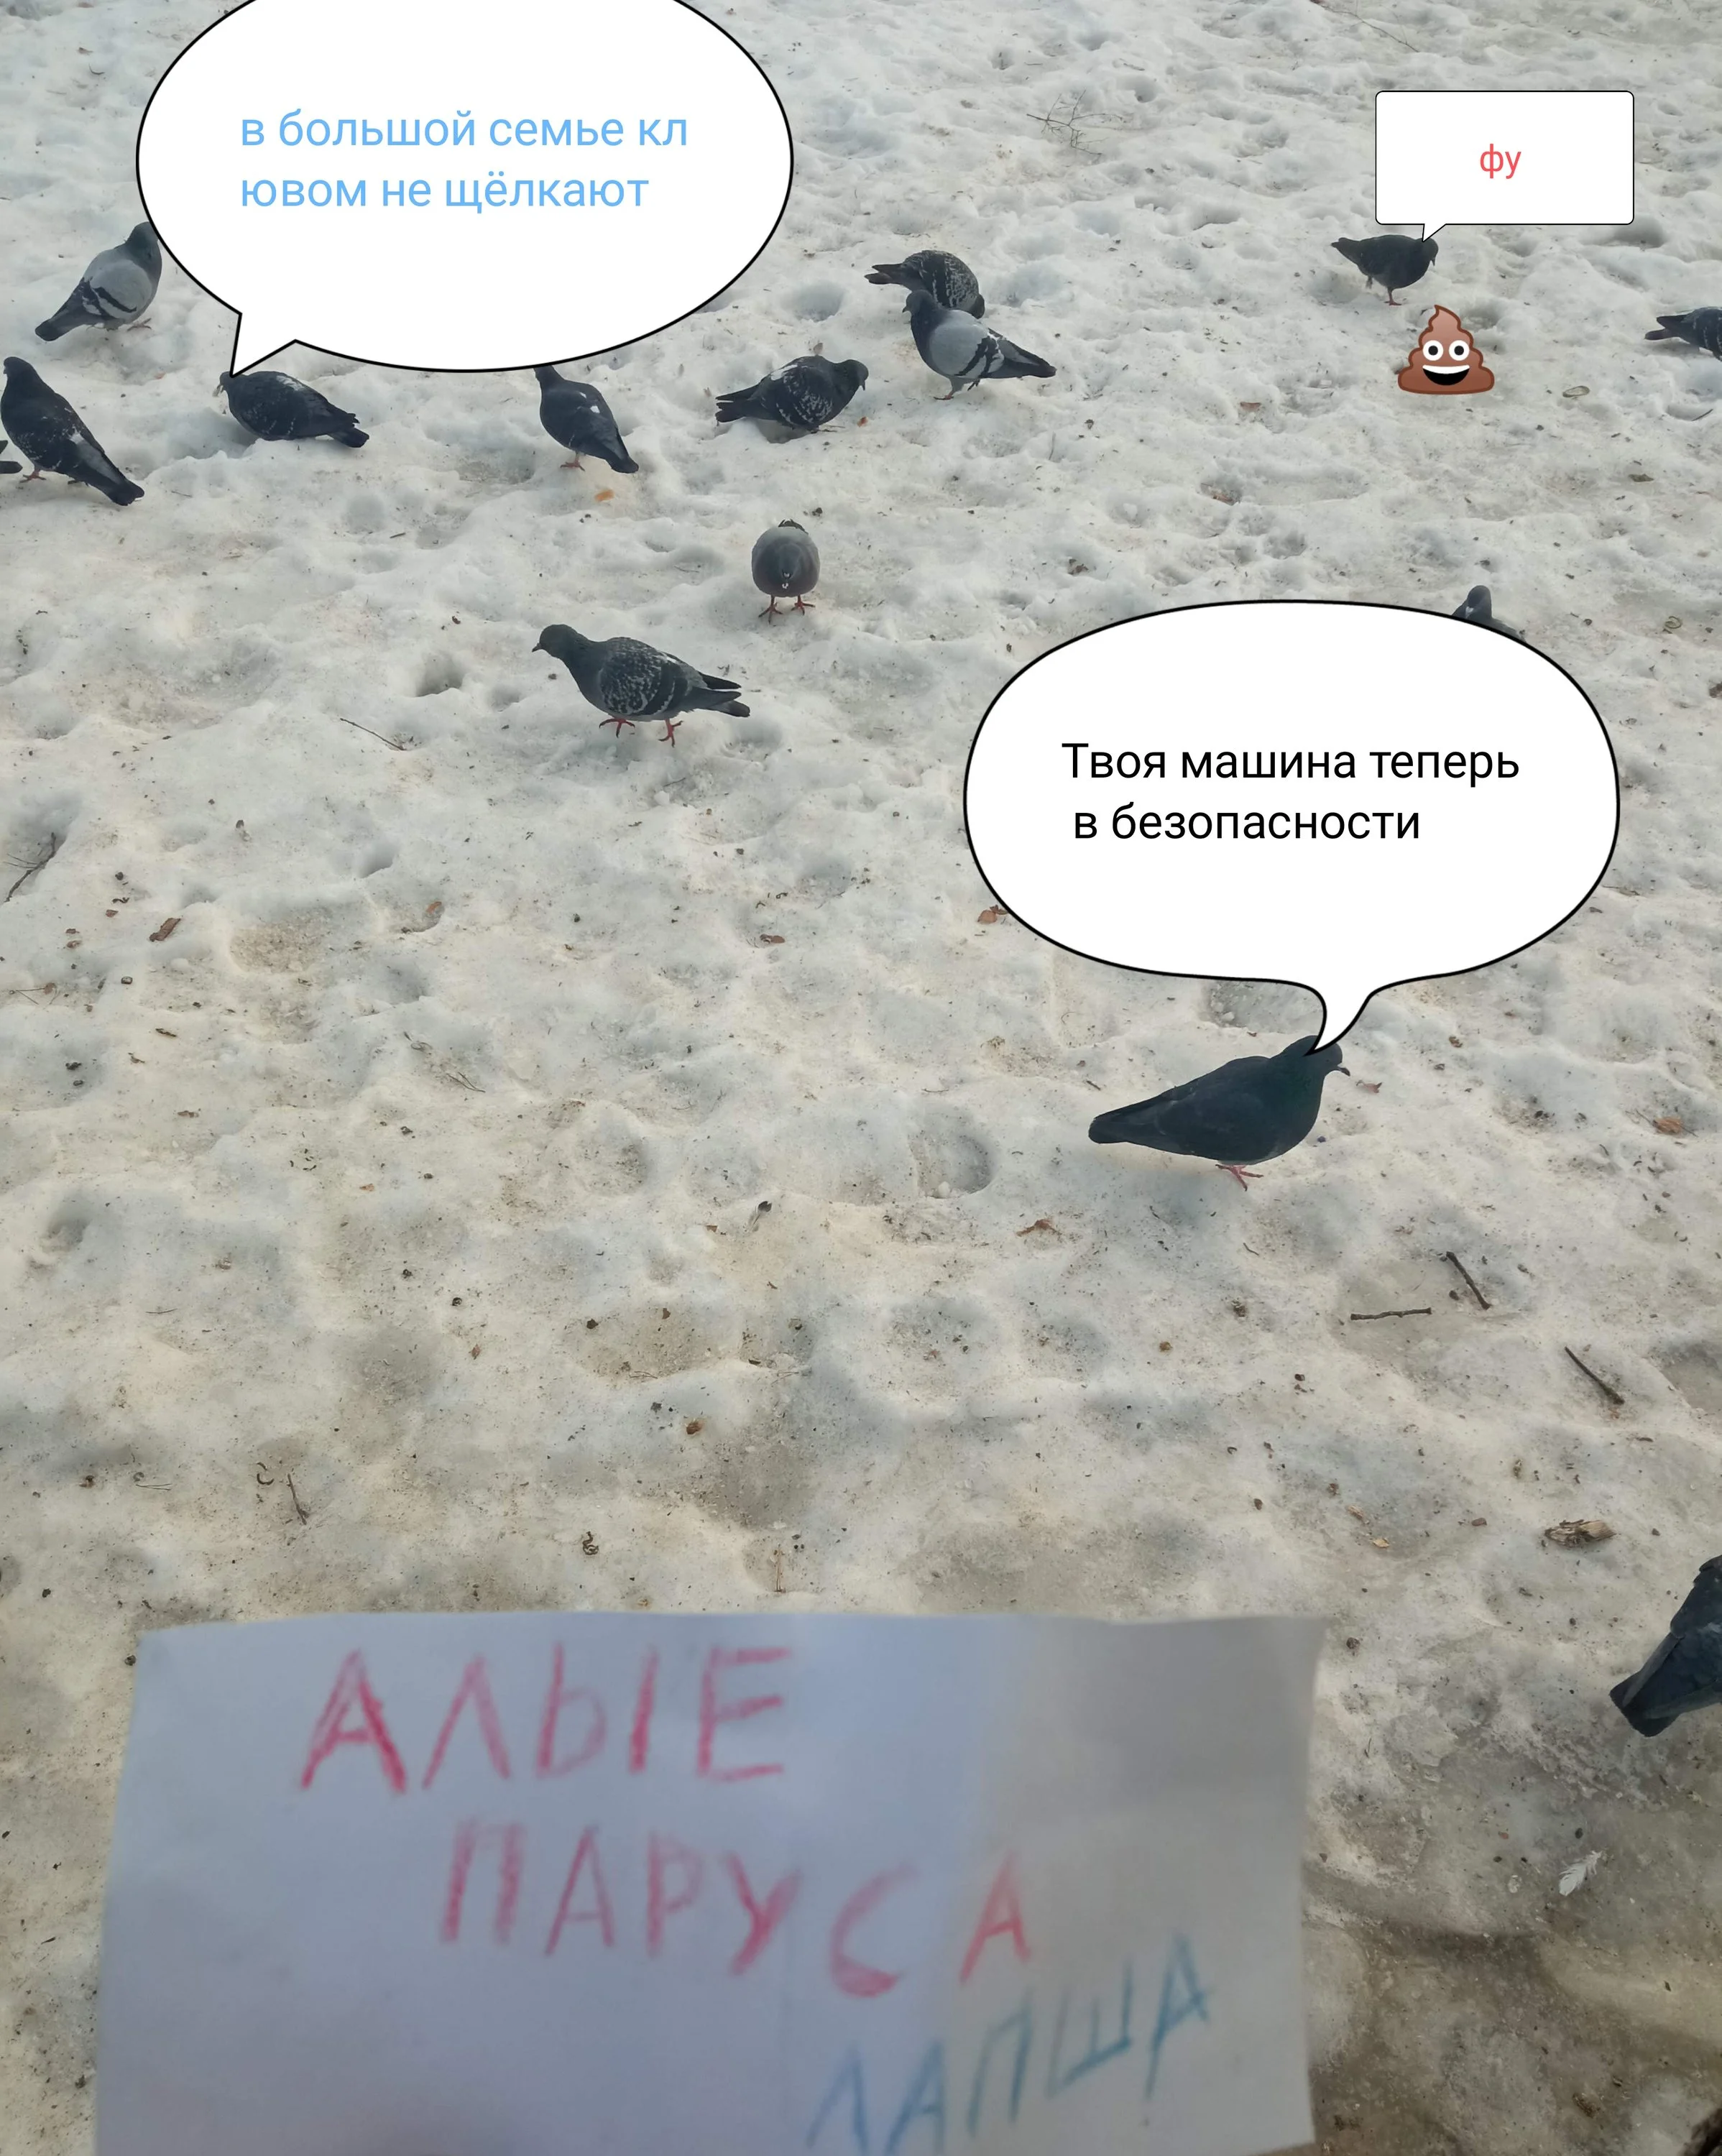 в большой семье кл
ювом не щёлкают
фу
Твоя машина теперь
в безопасности
АЛЫЕ
ПАРУСА
ЛАПША